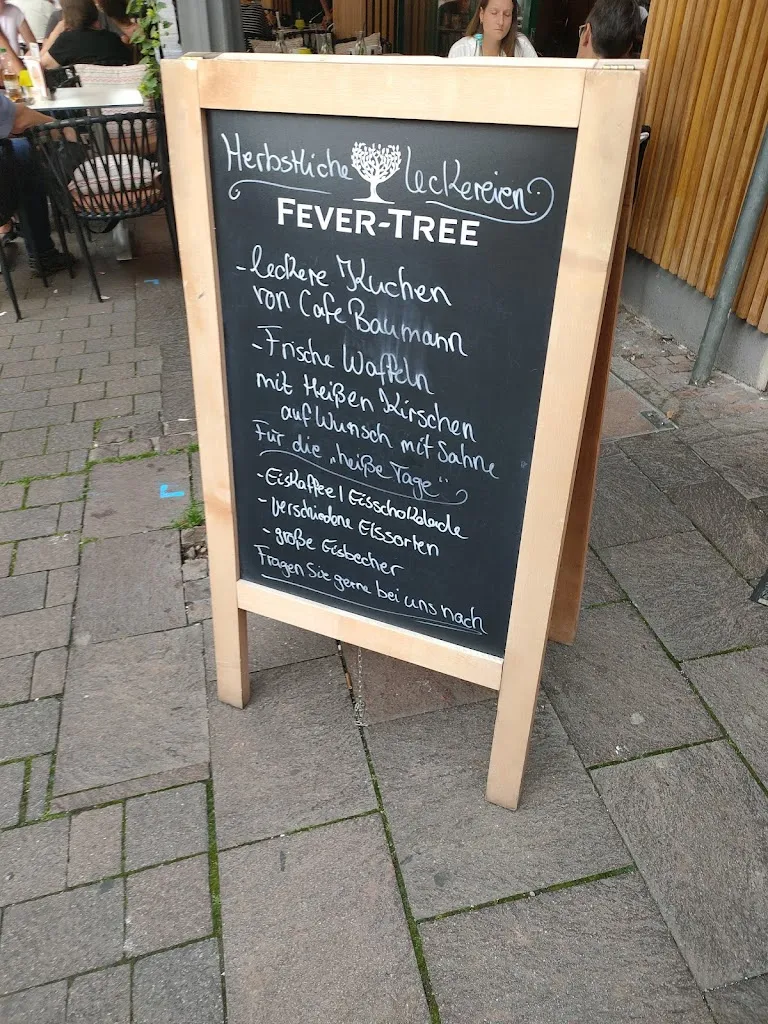 Herbstliche leckereien
FEVER-TREE
- leckere Kuchen
von Cafe Baumann
- Frische Waffeln
mit Heißen Kirschen
auf Wunsch mit Sahne
Für die "heiße Tage"
- Eiskaffee | Eisschokolade
- verschiedene Eissorten
- große Eisbecher
Fragen Sie gerne bei uns nach